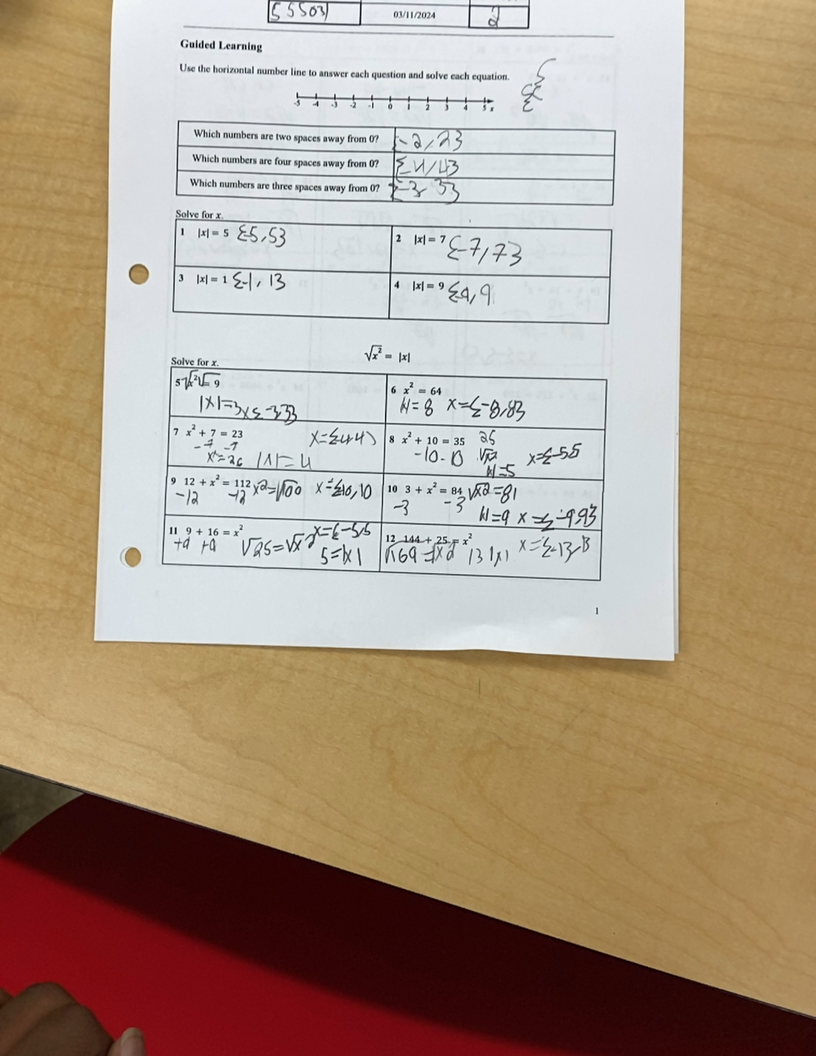 55503 03/11/2024 2
Guided Learning
Use the horizontal number line to answer each question and solve each equation.
-5 -4 -3 -2 -1 0 1 2 3 4 5 x
Which numbers are two spaces away from 0? {-2,2}
Which numbers are four spaces away from 0? {-4,4}
Which numbers are three spaces away from 0? {-3 3}
Solve for x.
1 |x| = 5 {-5,5}
2 |x| = 7 {-7,7}
3 |x| = 1 {-1, 1}
4 |x| = 9 {-9, 9
√x² = |x|
Solve for x.
5 √x² √= 9
|x|=3 x {-3,3}
6 x² = 64
|x|= 8 x={-8,8}
7 x² + 7 = 23 x={-4,4}
-7 -7
|x|= 4
8 x² + 10 = 35 25
-10 -10 √x²
|x|=5 x={-5 5
9 12 + x² = 112 x²=√100 x={-10,10
-12 -12
10 3 + x² = 84 √x2 =81
-3 -3
|x|=9 x={-9,9}
11 9 + 16 = x² x={-5,5
+9 +9 √25=√x2
5=|x|
12 144 + 25 = x²
√169 = √x2 13 |x| x={-13,13
1